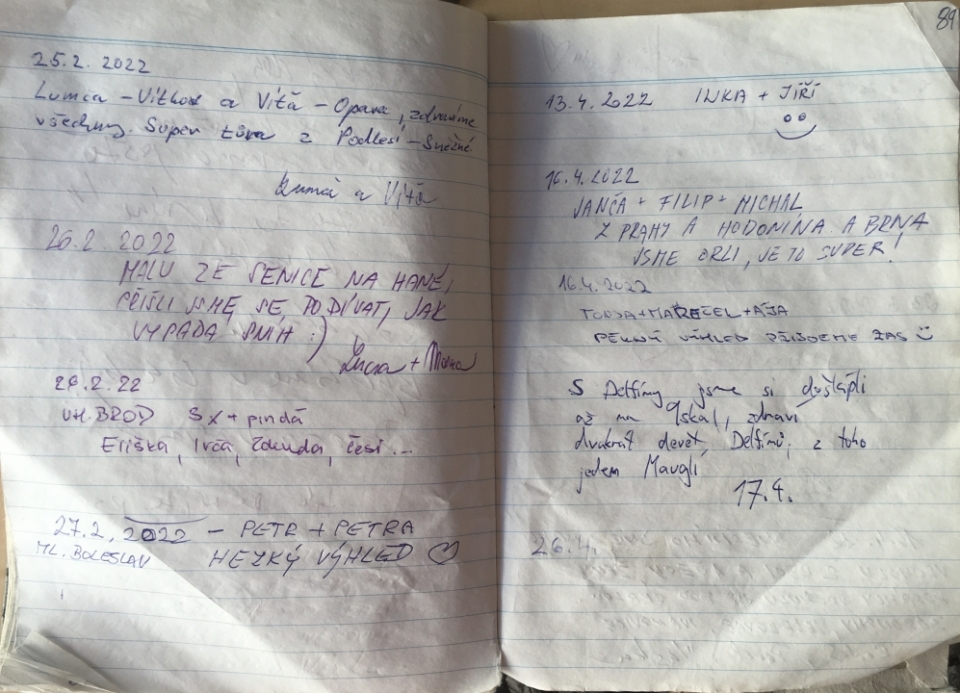 25.2. 2022
Lumča - Vítkov a Víťa - Opava, zdravíme
všechny. Super túra z Podlesí - Sněžné
Lumča a Víťa
26.2. 2022
MALU ZE SENICE NA HANÉ,
PŘIŠLI JSME SE, PODÍVAT, JAK
VYPADÁ SNÍH :)
26.2.22
UH. BROD 3x + pindă
Eliška, Ivča, Zdenda, češi...
27.2. 2022 - PETR + PETRA
ML. BOLESLAV HEZKÝ VÝHLED ♡
89
13.4. 2022 INKA + JIŘÍ
16.4. 2022
JANČA + FILIP + MICHAL
Z PRAHY A HODONÍNA A BRNA
JSME ORLI, JE TO SUPER!
16.4.2022
+ AJA
PĚKNÝ VÝHLED PŘIJDEME ZAS
S Delfíny jsme si došlápli
až na skal, zdraví
dvakrát devět Delfínů, z toho
jeden Mauglí
17.4.
26.4.